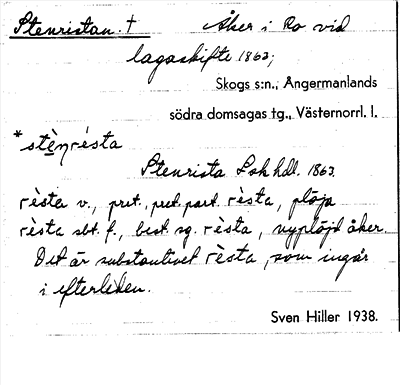 Stenristan. † Åker i Ro vid
lagaskifte 1863;
Skogs s:n., Ångermanlands
södra domsagas tg., Västernorrl. l.
*stèṇrèsta
Stenrista Lsk hdl. 1863.
rèsta v., pret., pret. part. rèsta, plöja
rèsta sbt. f., best. sg. rèsta, nyplöjd åker.
Det är substantivet rèsta, som ingår
i efterleden.
Sven Hiller 1938.